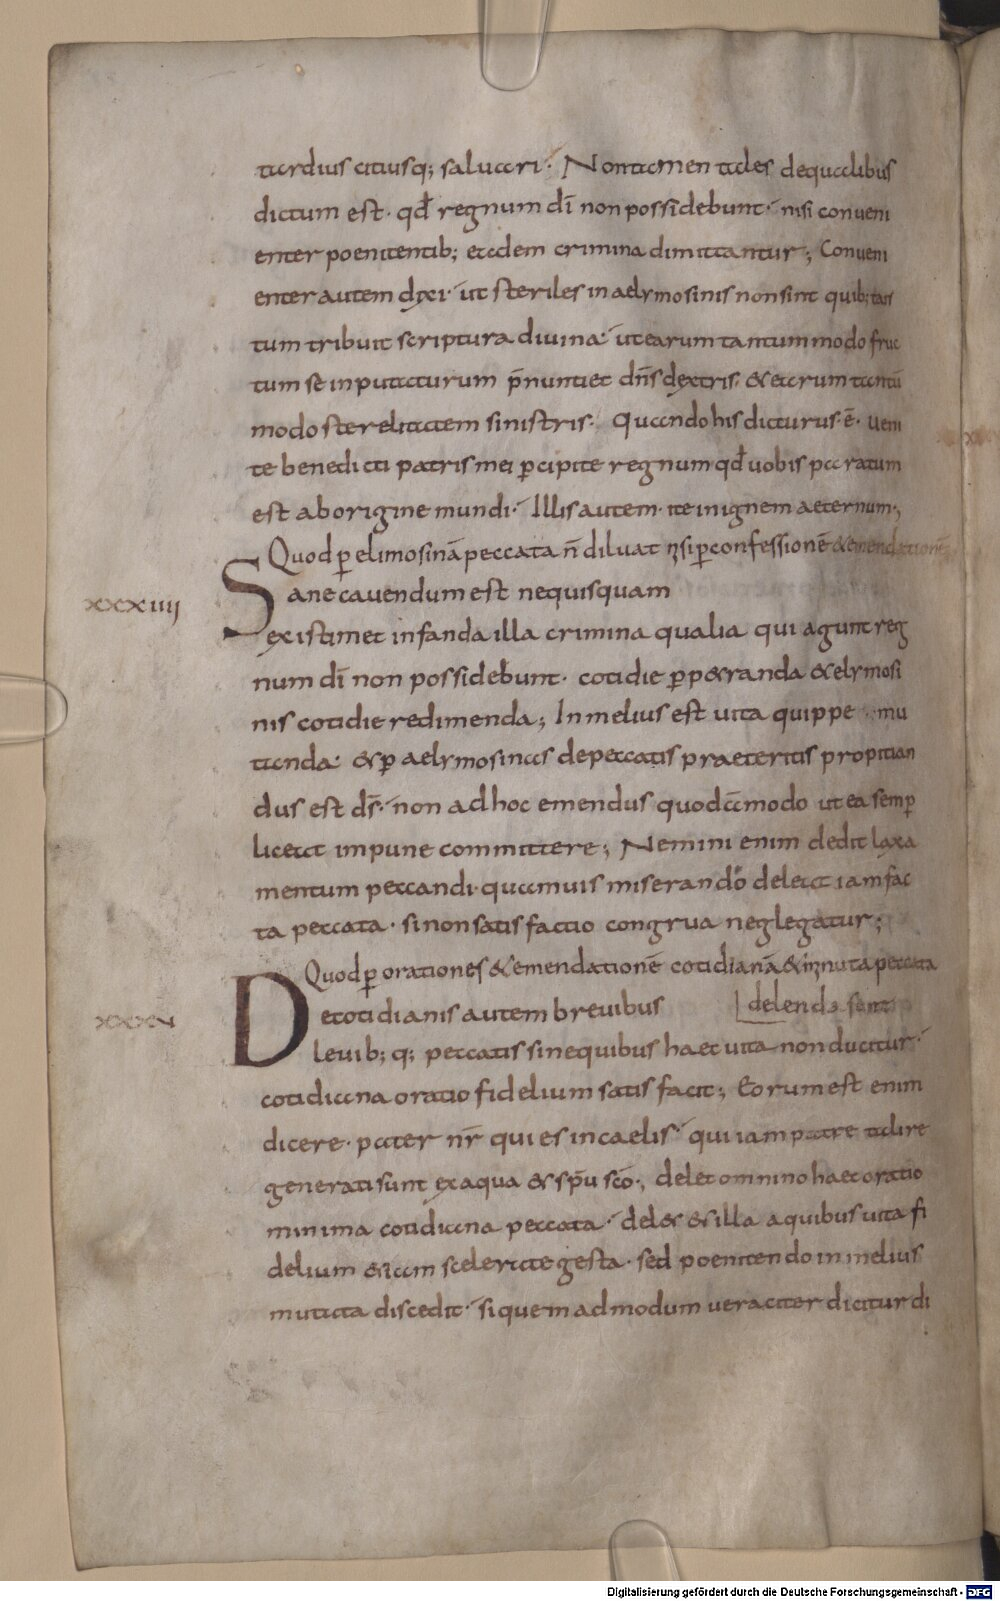 tardius citiusq; saluari· Non tamen tales dequalibus
dictum est· qđ regnum dī non possidebunt· nisi conueni
enter poenitentib; eadem crimina dimittantur; Conueni
enter autem dixi· ut steriles in aelymosinis non sint quib; tan
tum tribuit scriptura diuina· ut earum tantummodo fruc
tum se inputaturum p̄nuntiet dn̄s dextris· & earum tantū
modo sterelitatem sinistris· Quando his dicturus· ē· Ueni
te benedicti patris mei percipite regnum qđ uobis paratum
est ab origine mundi· Illis autem· ite in ignem aeternum·,
Quod ꝑ elimosinā peccata n̄ diluat nisi ꝑ confessionē & emendationē
XXXIIII
Sane cauendum est nequisquam
existimet infanda illa crimina qualia qui agunt reg
num dī non possidebunt· cotidie ꝑp&randa & elymosi
nis cotidie redimenda; In melius est uita quippe mu
tanda· & ꝑ aelymosinas de peccatis praeteritis propitian
dus est ds̄· non ad hoc emendus quodāmodo ut ea semꝑ
liceat impune committere; Nemini enim dedit laxa
mentum peccandi· quamuis miserando deleat iam fac
ta peccata· si non satisfactio congrua neglegatur;
Quod ꝑ orationes & emendationē cotidianā & minuta peccata
delenda sunt
XXXV
De cotidianis autem breuibus
leuib; q; peccatis sine quibus haec uita non ducitur·
cotidiana oratio fidelium satis facit; Eorum est enim
dicere· pater nr̄ qui es in caelis· qui iam patre tali re
generati sunt ex aqua & sp̄u sc̄o·, delet omnino haec oratio
minima cotidiana peccata· del& & illa a quibus uita fi
delium &iam scelerate gesta· sed poenitendo in melius
mutata discedit· si quemadmodum ueraciter dicitur di
Digitalisierung gefördert durch die Deutsche Forschungsgemeinschaft - DFG